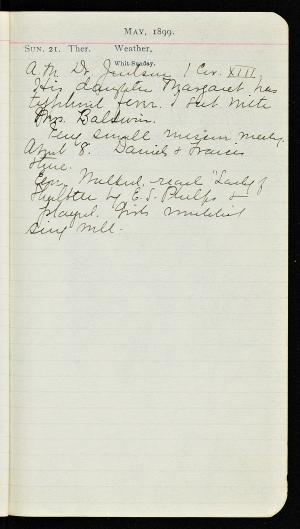 MAY, 1899.
SUN. 21. Ther. Weather,
Whit-Sunday.
A.M. Dr. Judson 1 Cor. XIII
His daughter Margaret has
typhoid fever. I sat with
Mrs. Baldwin.
small mission meeting.
April 8. Daniels & Francis
here.
read "Lady of
by E. S. Phelps &
played. Girls
sing well.